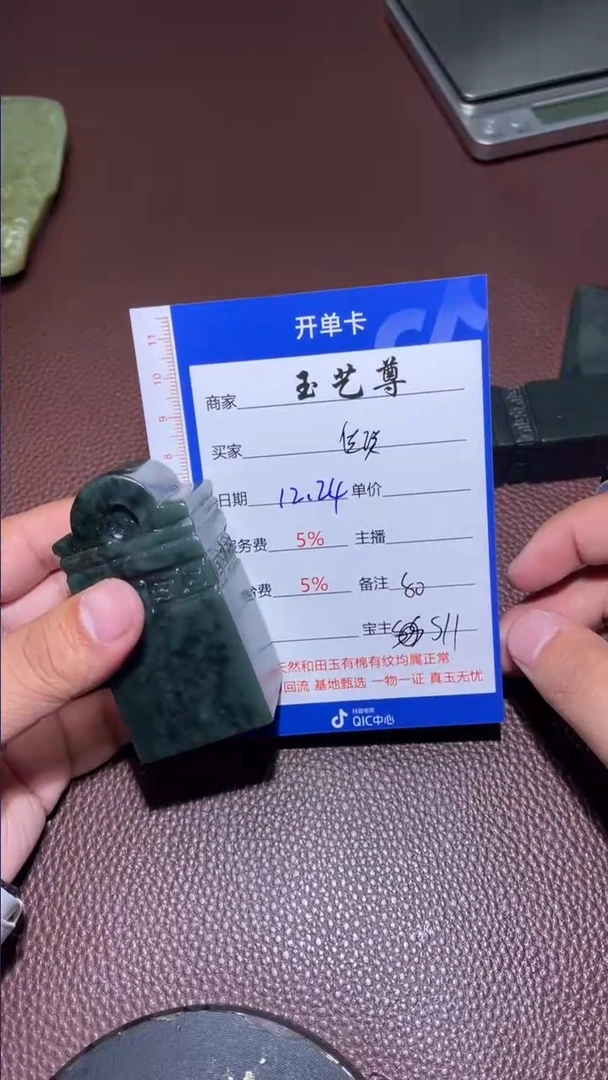 开单卡
商家 玉艺尊
买家
日期 12.24 单价
务费 5% 主播
费 5% 备注 80
宝主 S11
天然和田玉有棉有纹均属正常
回流 基地甄选 一物一证 真玉无忧
抖音电商
QIC中心
11
10
9
8